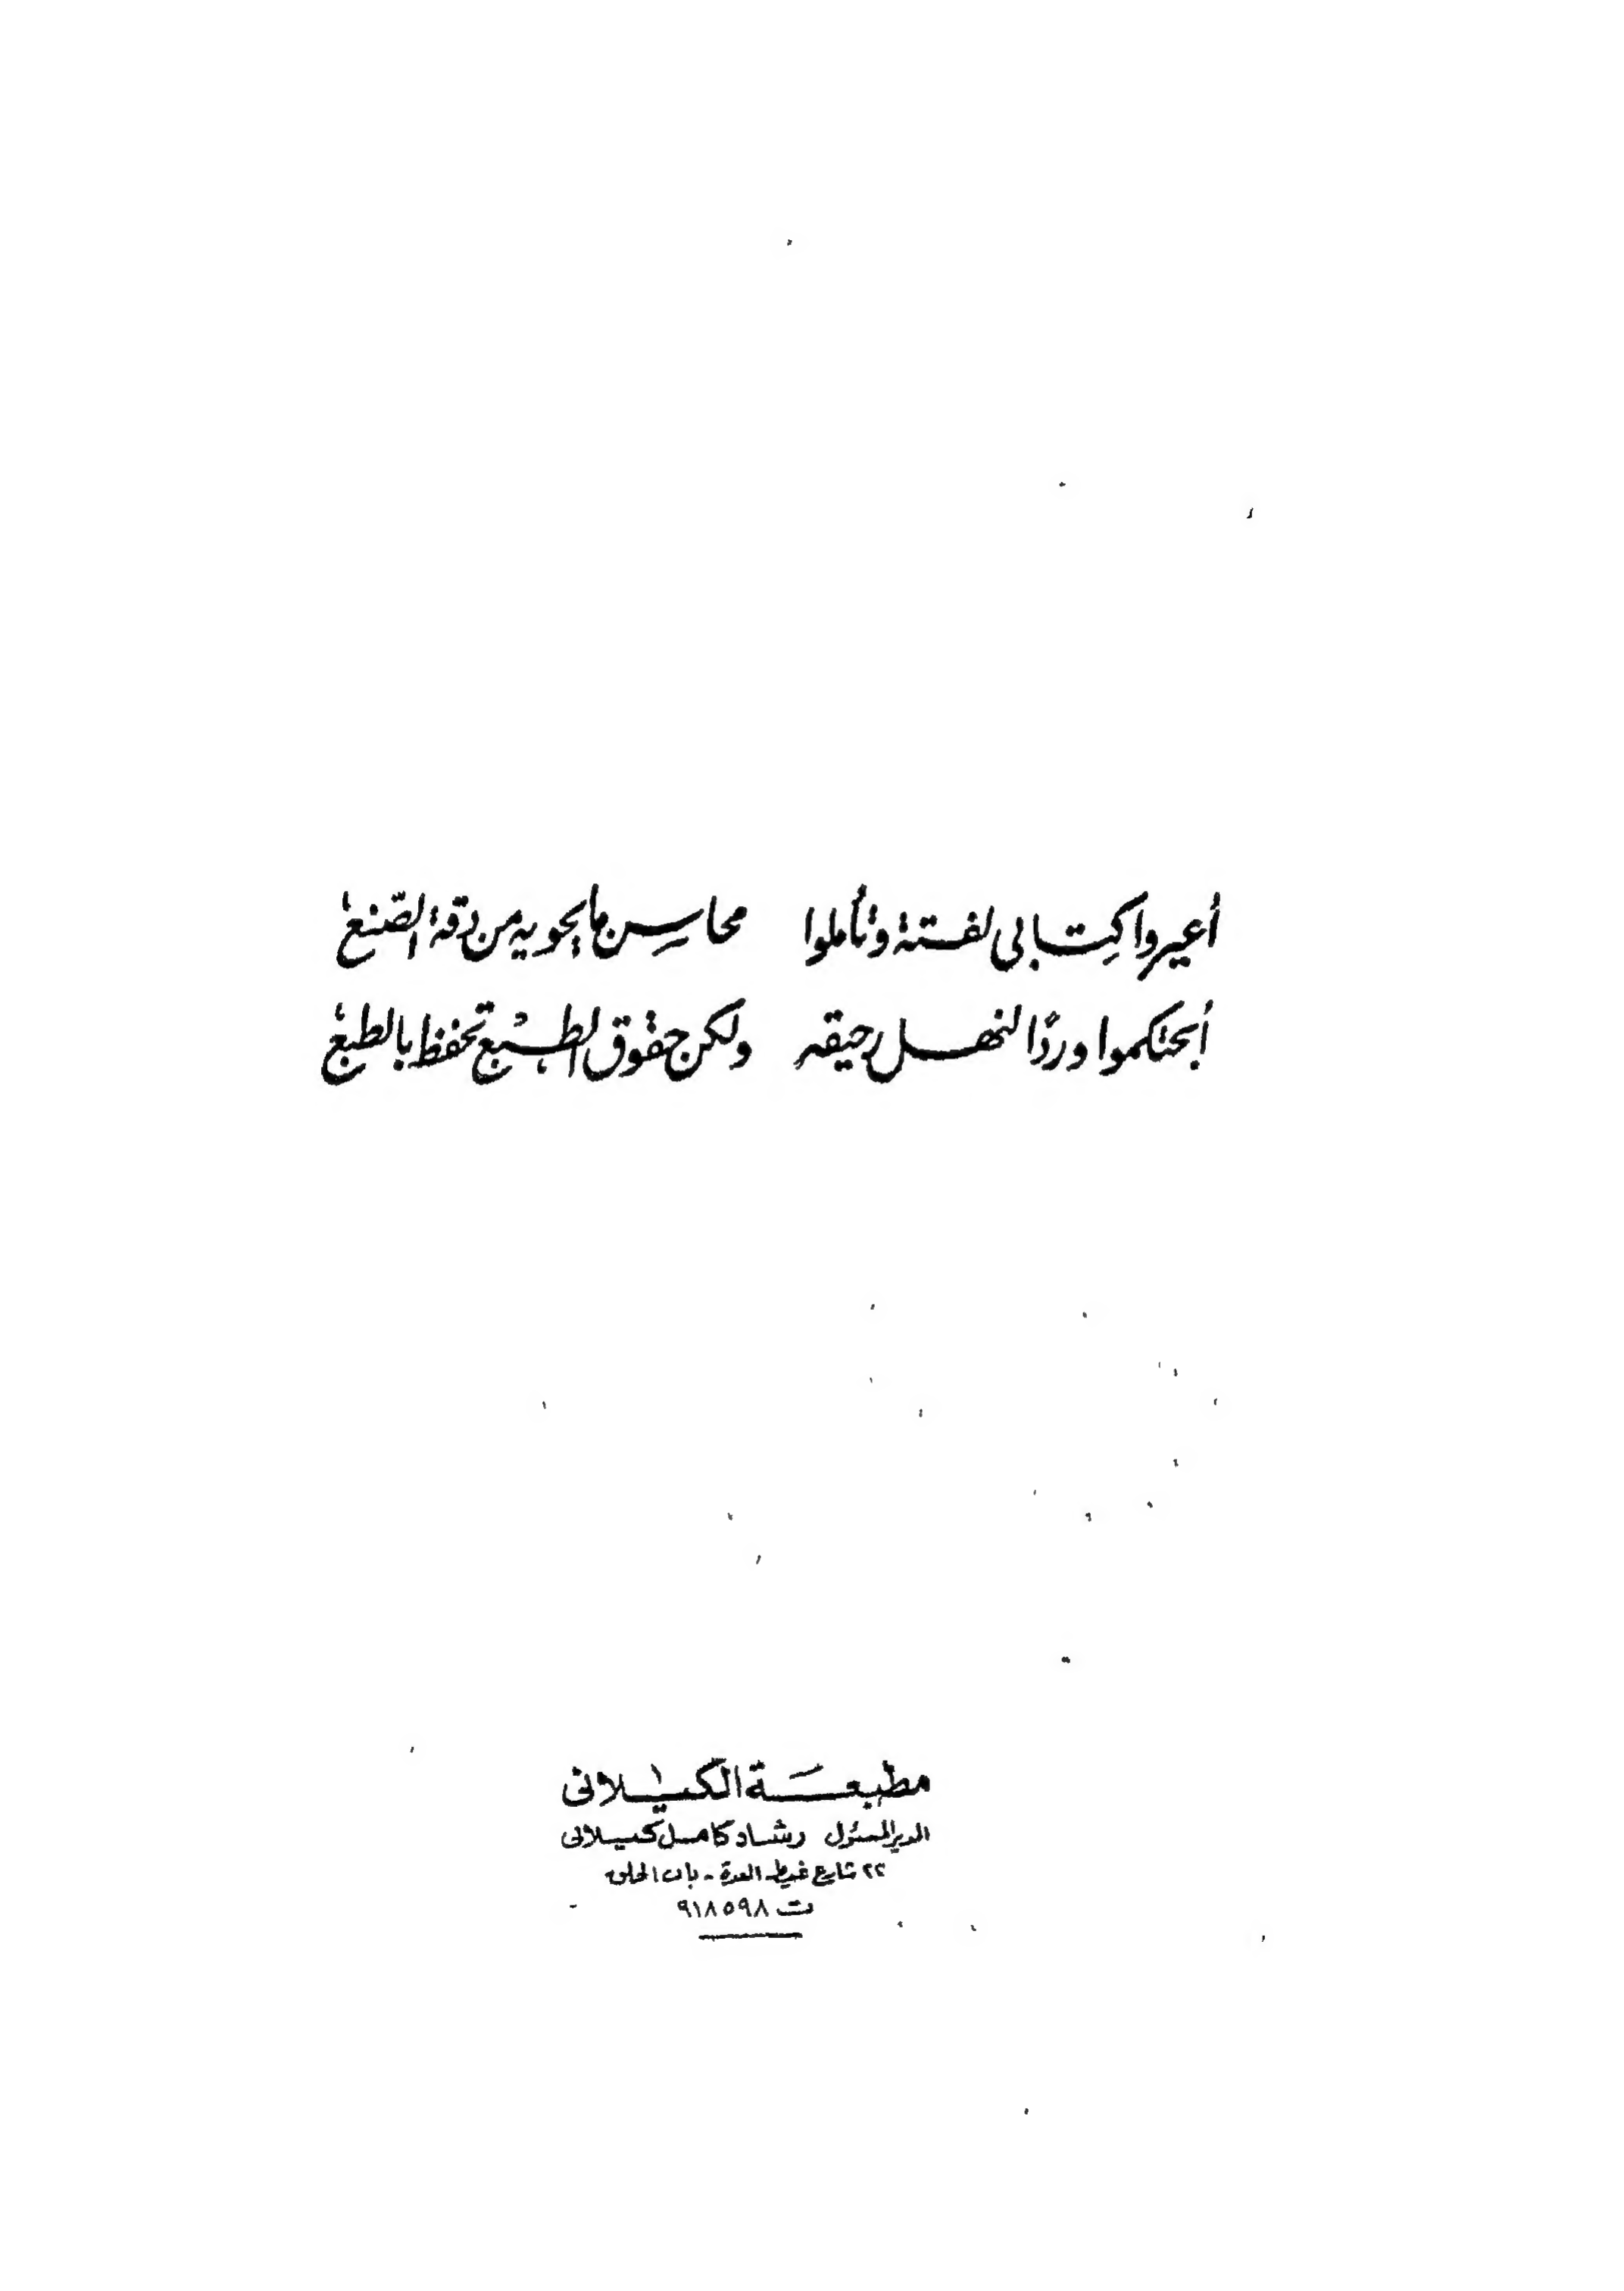 أعيروا كتابى لفتة وتأملوا محاسن ما يحويه من دقة الصنع
أبحنكموا وردًا لنهل رحيقه ولكن حقوق الطبع تحفظ بالطبع
مطبعة الكيلانى
المدير المسئول رشاد كامل كيلانى
٢٢ شارع غيط العدة - باب الخلق
ت ٩١٨٥٩٨